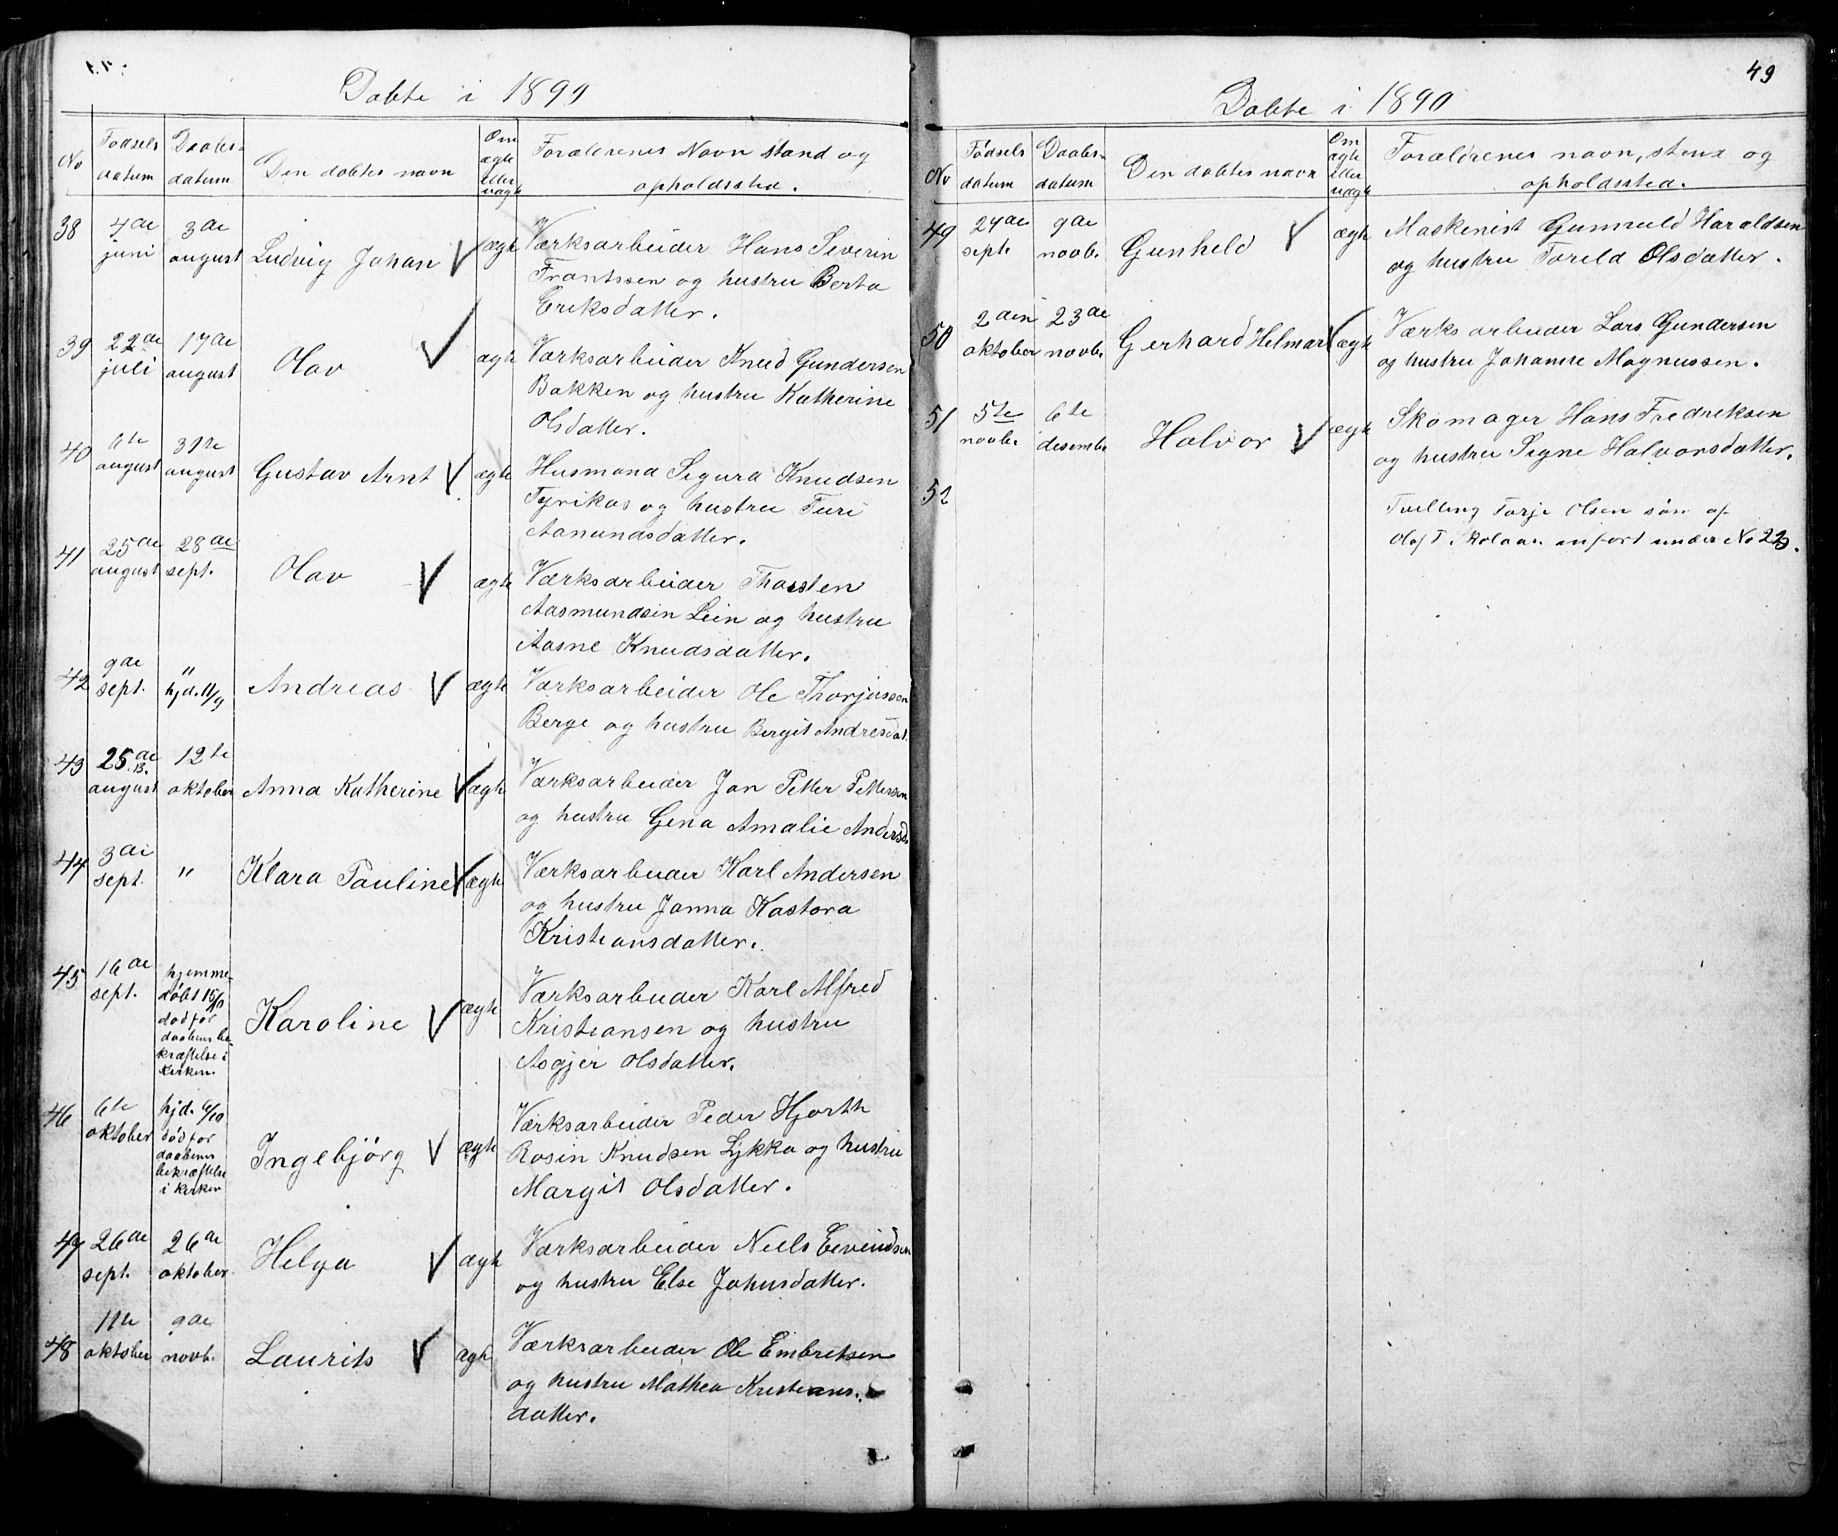 Døbte i 1890
No
Fødsels
datum
Daabs-
datum
Den døbtes navn
Om
ægte
eller
uægte
Forældrenes Navn stand og
opholdssted.
38 4de juni 3de august Ludvig Johan V ægte Værksarbeider Hans Severin
Frantssen og hustru Berta
Eriksdatter.
39 22de juli 17de august Olav V ægte Værksarbeider Knud Gundersen
Bakken og hustru Katherine
Olsdatter.
40 6te august 31te august Gustav Arnt V ægte Husmand Sigurd Knudsen
Tyrikos og hustru Turi
Aamundsdatter.
41 25de august 28de sept. Olav V ægte Værksarbeider Thorsten
Aasmundsen Lein og hustru
Aasne Knudsdatter.
42 9de sept. " hjd. 11/9 Andreas V ægte Værksarbeider Ole Thorjussen
Berge og hustru Bergit Andresdat.
43 25de august 12te oktober Anna Katherine V ægte Værksarbeider Jon Petter Pettersen
og hustru Gena Amalie Andersd
44 3de sept. " Klara Pauline V ægte Værksarbeider Karl Andersen
og hustru Janna Kastora
Kristiansdatter.
45 16de sept. hjemme-
døbt 15/10
død før
daabens be-
kræftelse i
kirken.
Karoline V ægte Værksarbeider Karl Alfred
Kristiansen og hustru
Asgjer Olsdatter.
46 6te oktober hjd. 6/10
død før
daabens
bekræftelse
i kirken
Ingebjörg V ægte Værksarbeider Peder Hjorth
Rosin Knudsen Lykka og hustru
Margit Olsdatter.
47 26de sept. 26de oktober Helga V ægte Værksarbeider Niels Eevindsen
og hustru Else Johnsdatter.
48 11te oktober 9de novb. Laurits V ægte Værksarbeider Ole Embretsen
og hustru Mathea Kristians-
datter.
49
Døbte i 1890
No
Fødsels
datum
Daabs-
datum
Den døbtes navn
Om
ægte
eller
uægte
Forældrenes navn, stand og
opholdssted.
49 24de sept. 9de novb. Gunheld V ægte Maskenist Gunnuld Haroldsen
og hustru Toreld Olsdatter.
50 2den oktober 23de novb. Gerhard Helmar V ægte Værksarbeider Lars Gundersen
og hustru Johanne Magnussen.
51 5te novbr 6te desembr Halvor V ægte Skomager Hans Fredriksen
og hustru Signe Halvorsdatter.
52
Tvilling Torje Olsen søn af
Olaf T. anført under No 22